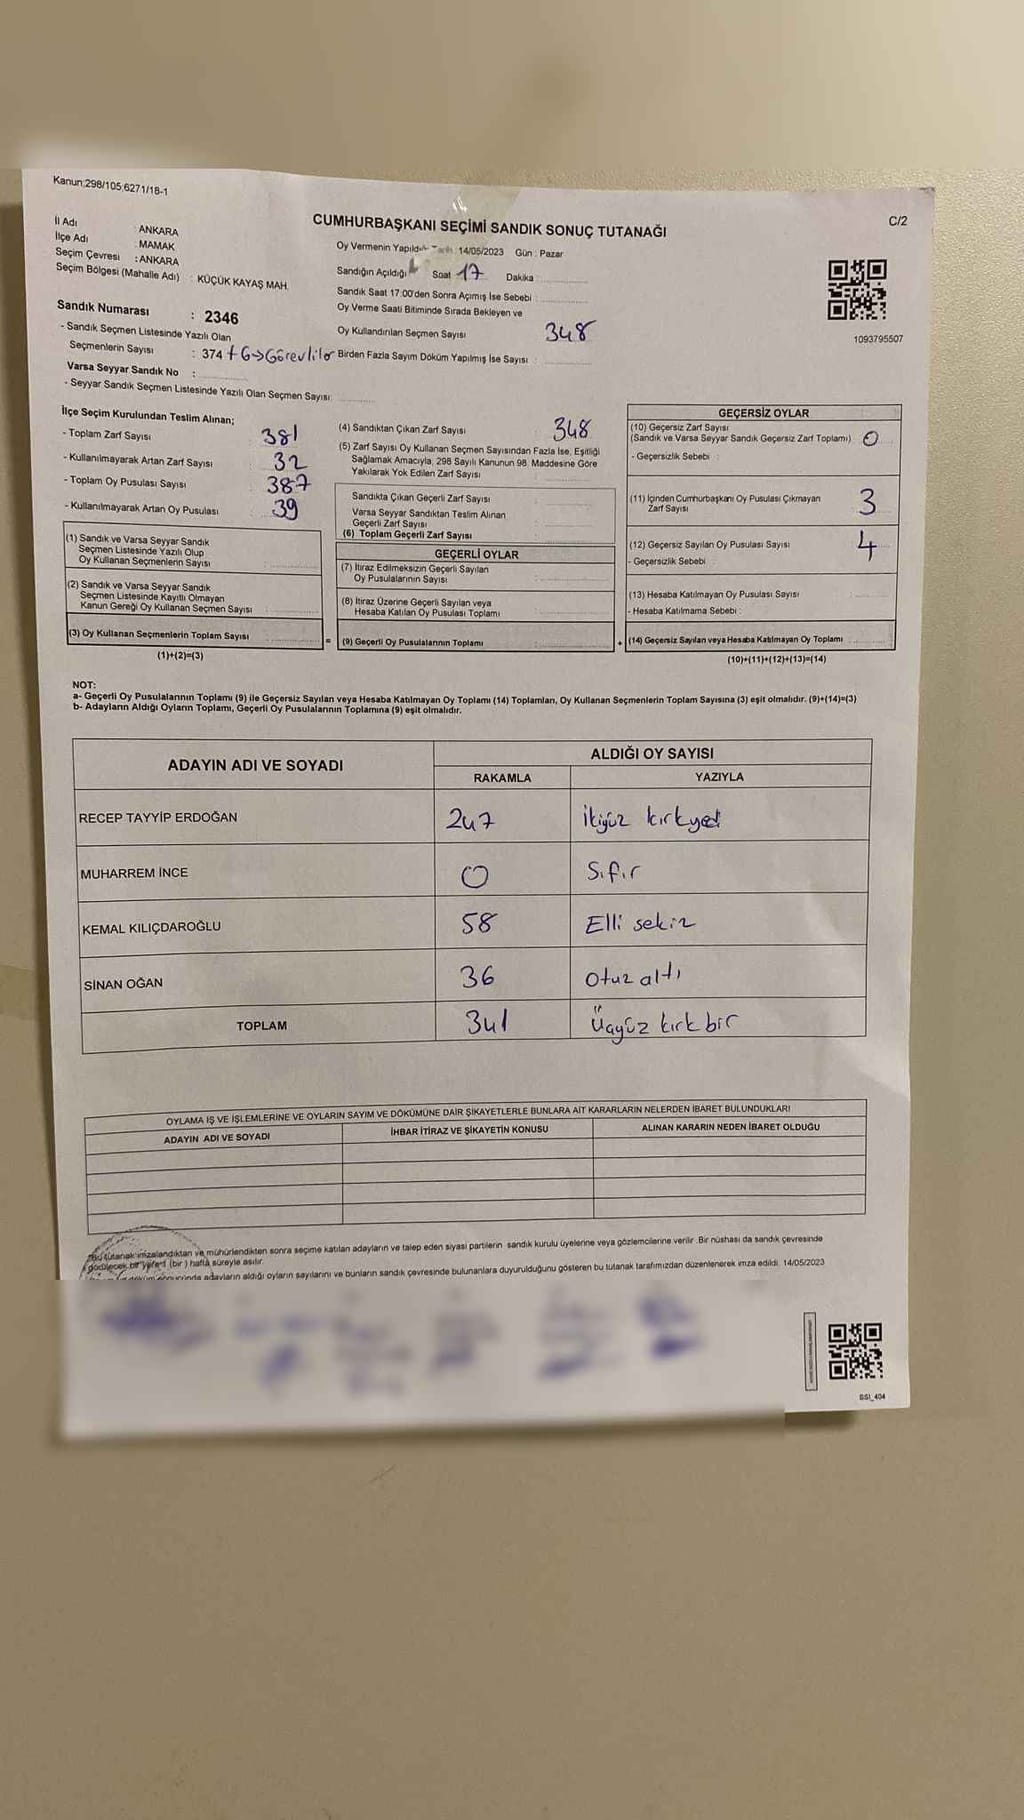 Kanun:298/105;6271/18-1
C/2
İl Adı : ANKARA
İlçe Adı : MAMAK
Seçim Çevresi : ANKARA
Seçim Bölgesi (Mahalle Adı) : KÜÇÜK KAYAŞ MAH.
CUMHURBAŞKANI SEÇİMİ SANDIK SONUÇ TUTANAĞI
Oy Vermenin Yapıldığı Tarih 14/05/2023 Gün : Pazar
Sandığın Açıldığı Saat 17 Dakika
Sandık Saat 17:00'den Sonra Açımış İse Sebebi :
Oy Verme Saati Bitiminde Sırada Bekleyen ve
Oy Kullandırılan Seçmen Sayısı 348
Birden Fazla Sayım Döküm Yapılmış İse Sayısı :
1093795507
Sandık Numarası : 2346
- Sandık Seçmen Listesinde Yazılı Olan
Seçmenlerin Sayısı : 374 + 6→Görevliler
Varsa Seyyar Sandık No :
- Seyyar Sandık Seçmen Listesinde Yazılı Olan Seçmen Sayısı:
İlçe Seçim Kurulundan Teslim Alınan;
- Toplam Zarf Sayısı 381
- Kullanılmayarak Artan Zarf Sayısı 32
- Toplam Oy Pusulası Sayısı 387
- Kullanılmayarak Artan Oy Pusulası 39
(1) Sandık ve Varsa Seyyar Sandık
Seçmen Listesinde Yazılı Olup
Oy Kullanan Seçmenlerin Sayısı :
(2) Sandık ve Varsa Seyyar Sandık
Seçmen Listesinde Kayıtlı Olmayan
Kanun Gereği Oy Kullanan Seçmen Sayısı
(3) Oy Kullanan Seçmenlerin Toplam Sayısı
(1)+(2)=(3)
(4) Sandıktan Çıkan Zarf Sayısı 348
(5) Zarf Sayısı Oy Kullanan Seçmen Sayısından Fazla İse, Eşitliği
Sağlamak Amacıyla, 298 Sayılı Kanunun 98. Maddesine Göre
Yakılarak Yok Edilen Zarf Sayısı
Sandıkta Çıkan Geçerli Zarf Sayısı :
Varsa Seyyar Sandıktan Teslim Alınan
Geçerli Zarf Sayısı :
(6) Toplam Geçerli Zarf Sayısı
GEÇERLİ OYLAR
(7) İtiraz Edilmeksizin Geçerli Sayılan
Oy Pusulalarının Sayısı :
(8) İtiraz Üzerine Geçerli Sayılan veya
Hesaba Katılan Oy Pusulası Toplamı :
= (9) Geçerli Oy Pusulalarının Toplamı
GEÇERSİZ OYLAR
(10) Geçersiz Zarf Sayısı
(Sandık ve Varsa Seyyar Sandık Geçersiz Zarf Toplamı) 0
- Geçersizlik Sebebi :
(11) İçinden Cumhurbaşkanı Oy Pusulası Çıkmayan
Zarf Sayısı 3
(12) Geçersiz Sayılan Oy Pusulası Sayısı 4
- Geçersizlik Sebebi :
(13) Hesaba Katılmayan Oy Pusulası Sayısı
- Hesaba Katılmama Sebebi :
+ (14) Geçersiz Sayılan veya Hesaba Katılmayan Oy Toplamı
(10)+(11)+(12)+(13)=(14)
NOT:
a- Geçerli Oy Pusulalarının Toplamı (9) ile Geçersiz Sayılan veya Hesaba Katılmayan Oy Toplamı (14) Toplamları, Oy Kullanan Seçmenlerin Toplam Sayısına (3) eşit olmalıdır. (9)+(14)=(3)
b- Adayların Aldığı Oyların Toplamı, Geçerli Oy Pusulalarının Toplamına (9) eşit olmalıdır.
ADAYIN ADI VE SOYADI ALDIĞI OY SAYISI
RAKAMLA YAZIYLA
RECEP TAYYİP ERDOĞAN 247 ikiyüz kırkyedi
MUHARREM İNCE 0 Sıfır
KEMAL KILIÇDAROĞLU 58 Elli sekiz
SİNAN OĞAN 36 Otuz altı
TOPLAM 341 Üçyüz kırk bir
OYLAMA İŞ VE İŞLEMLERİNE VE OYLARIN SAYIM VE DÖKÜMÜNE DAİR ŞİKAYETLERLE BUNLARA AİT KARARLARIN NELERDEN İBARET BULUNDUKLARI
ADAYIN ADI VE SOYADI İHBAR İTİRAZ VE ŞİKAYETİN KONUSU ALINAN KARARIN NEDEN İBARET OLDUĞU
Bu tutanak imzalandıktan ve mühürlendikten sonra seçime katılan adayların ve talep eden siyasi partilerin sandık kurulu üyelerine veya gözlemcilerine verilir. Bir nüshası da sandık çevresinde
görülecek bir yere 1 (bir) hafta süreyle asılır.
adayların aldığı oyların sayılarını ve bunların sandık çevresinde bulunanlara duyurulduğunu gösteren bu tutanak tarafımızdan düzenlenerek imza edildi. 14/05/2023
SSİ_404